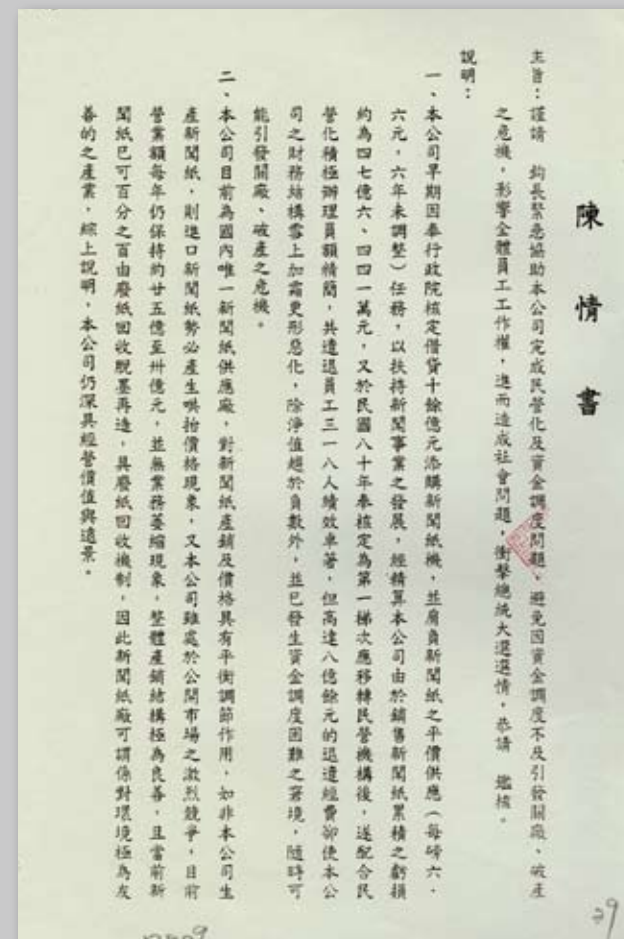 陳情書
主旨：謹請　鈞長緊急協助本公司完成民營化及資金調度問題，避免因資金調度不及引發關廠、破產
之危機，影響全體員工工作權，進而造成社會問題，衝擊總統大選選情，恭請　鑑核。
說明：
一、本公司早期因奉行政院核定借貸十餘億元添購新聞紙機，並肩負新聞紙之平價供應（每磅六．
六元，六年未調整）任務，以扶持新聞事業之發展，經精算本公司由於銷售新聞紙累積之虧損
約為四七億六、四四一萬元，又於民國八十年奉核定為第一梯次應移轉民營機構後，遂配合民
營化積極辦理員額精簡，共遣退員工三一八人績效卓著，但高達八億餘元的退遣經費卻使本公
司之財務結構雪上加霜更形惡化，除淨值趨於負數外，並已發生資金調度困難之窘境，隨時可
能引發關廠、破產之危機。
二、本公司目前為國內唯一新聞紙供應廠，對新聞紙產銷及價格具有平衡調節作用，如非本公司生
產新聞紙，則進口新聞紙勢必產生哄抬價格現象，又本公司雖處於公開市場之激烈競爭，目前
營業額每年仍保持約廿五億至卅億元，並無業務萎縮現象，整體產銷結構極為良善，且當前新
聞紙已可百分之百由廢紙回收脫墨再造，具廢紙回收機制，因此新聞紙廠可謂係對環境極為友
善的之產業，綜上說明，本公司仍深具經營價值與遠景。
29